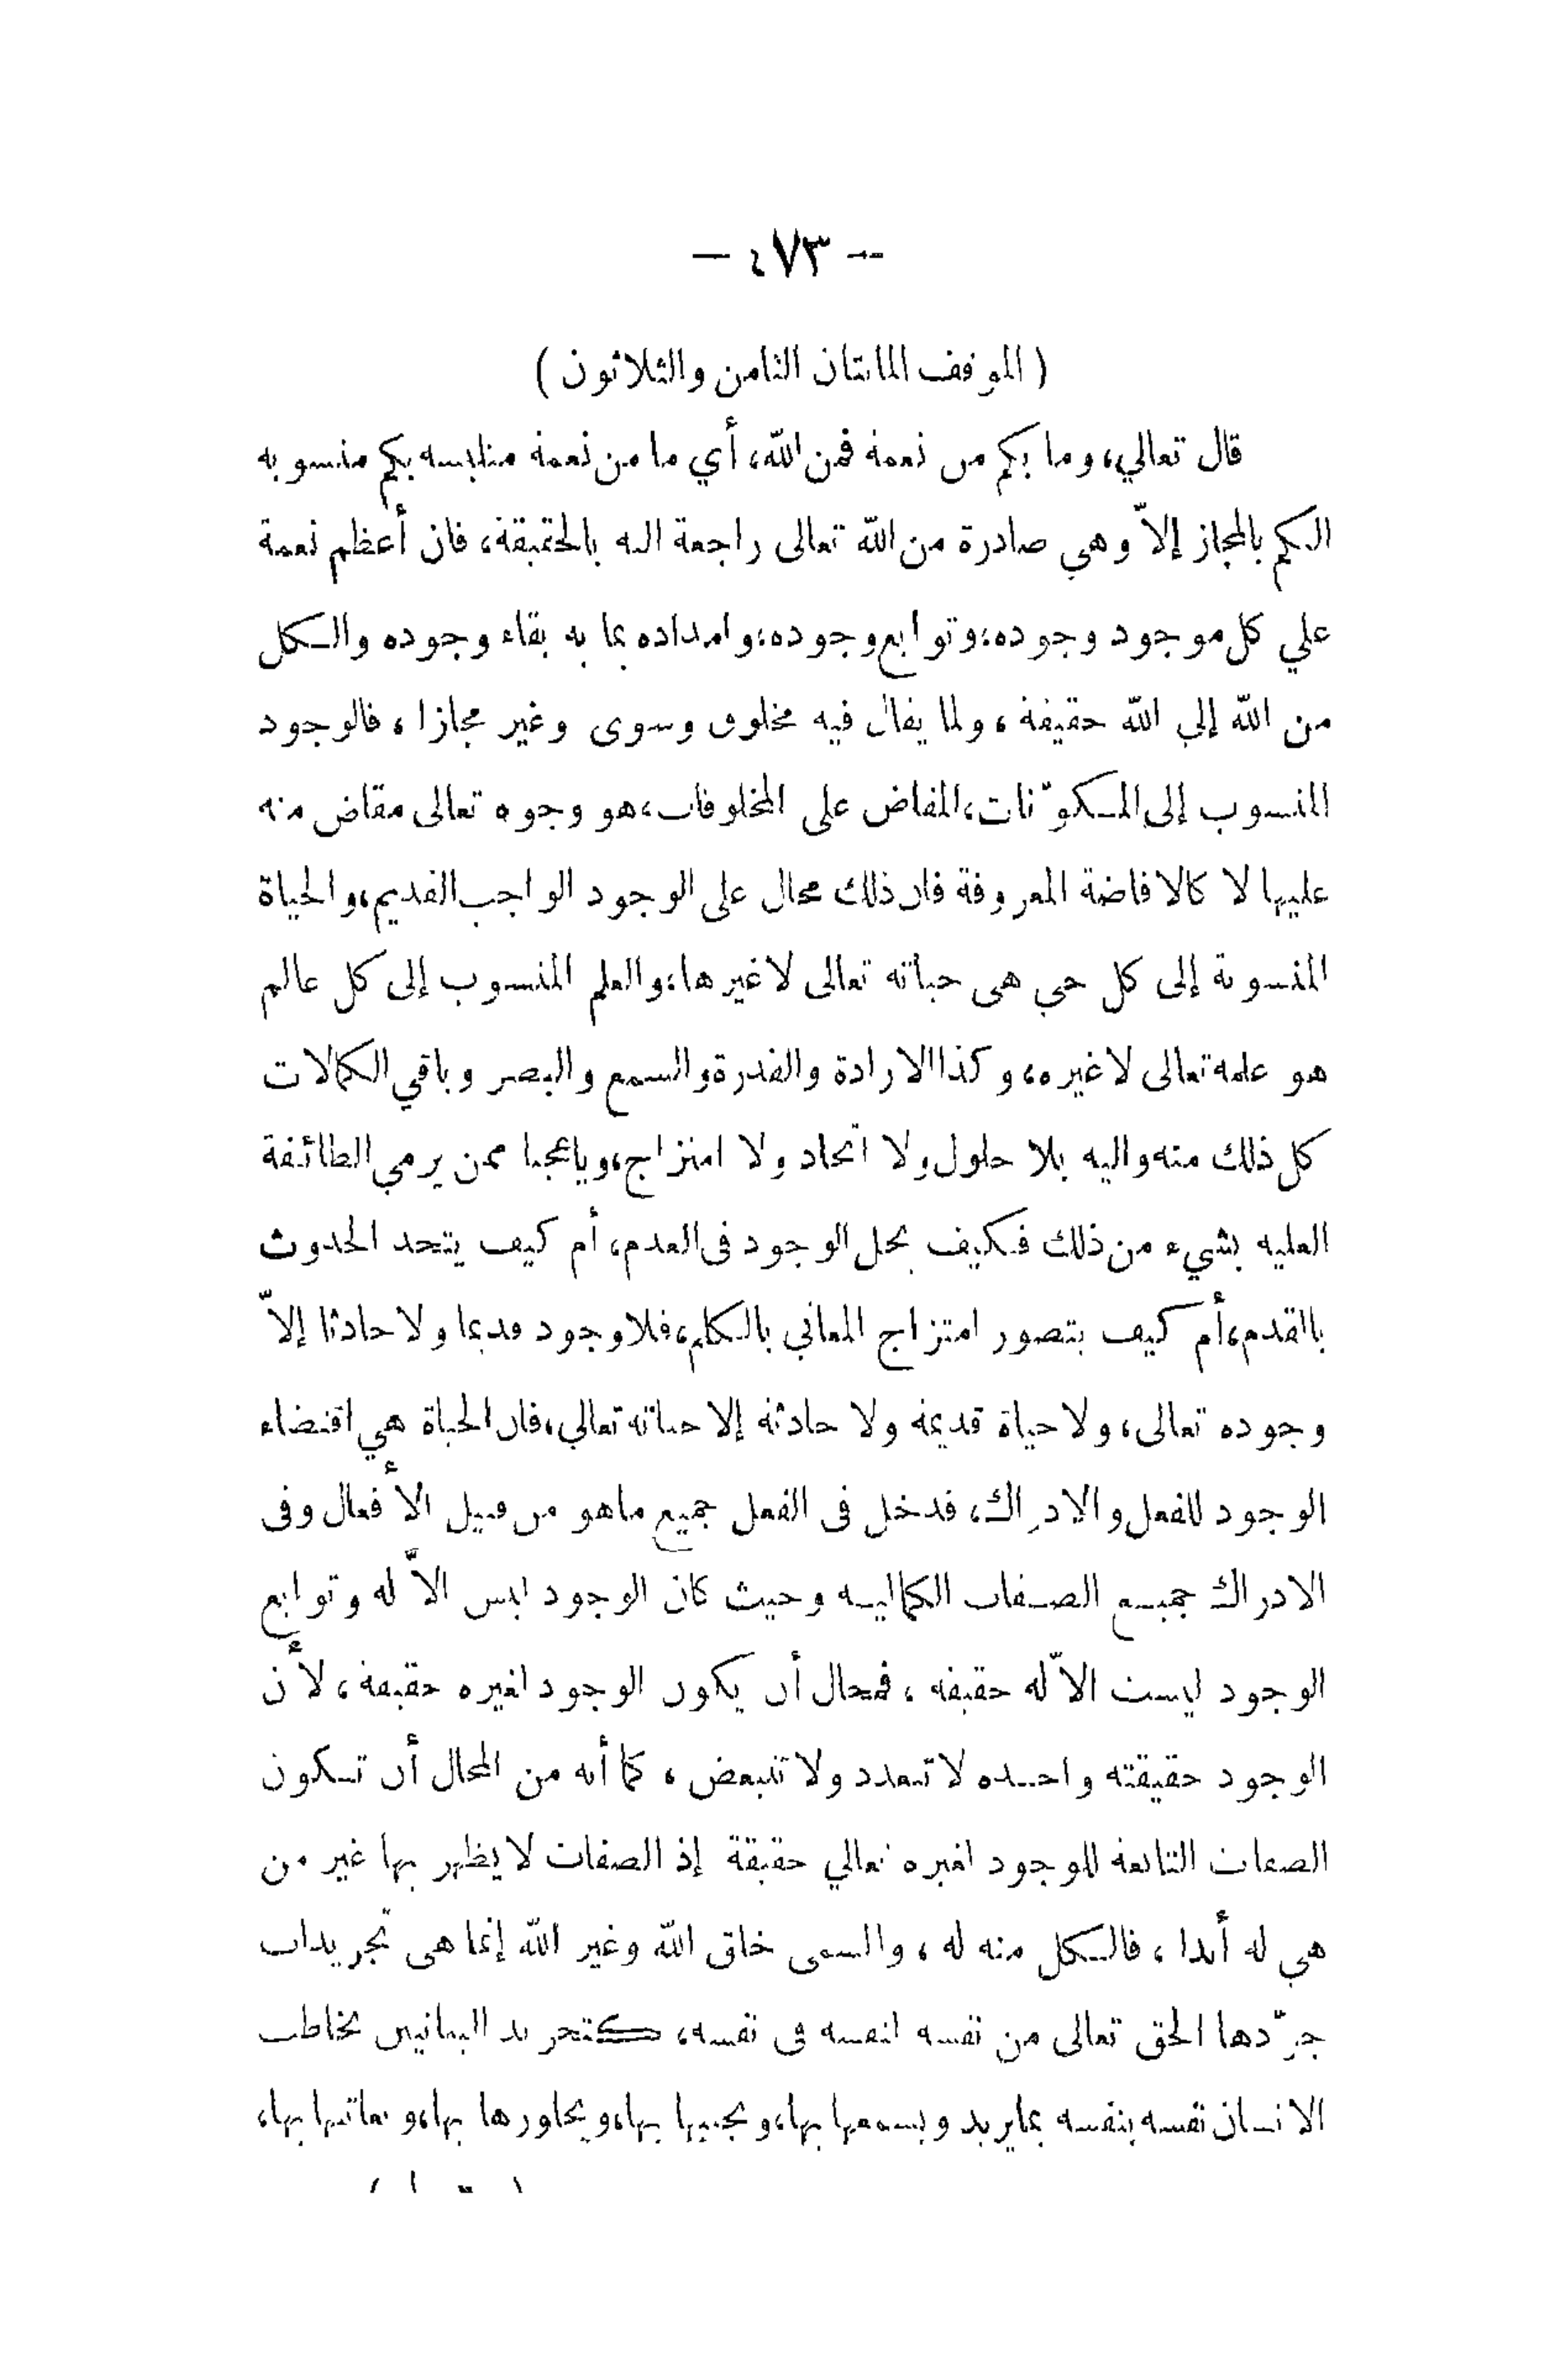 — ٤٧٣ —
( الموقف المائتان الثامن والثلاثون )
قال تعالي، وما بكم من نعمة فمن الله، أي ما من نعمة متلبسه بكم منسوبه
اليكم بالمجاز إلاّ وهي صادرة من الله تعالى راجعة اليه بالحقيقة، فان أعظم نعمة
علي كل موجود وجوده، وتوابع وجوده، وامداده بما به بقاء وجوده والكل
من الله إلي الله حقيقة، ولما يقال فيه مخلوق وسوى وغير مجازا، فالوجود
المنسوب إلى المكوّنات، المفاض على المخلوقات، هو وجوه تعالى مقاض منه
عليها لا كالافاضة المعروفة فان ذلك محال على الوجود الواجب القديم، والحياة
المنسوبة إلى كل حي هى حياته تعالى لاغيرها، والعلم المنسوب إلى كل عالم
هو علمه تعالى لاغيره، وكذا الارادة والقدرة والسمع والبصر وباقي الكمالات
كل ذلك منه واليه بلا حلول ولا اتحاد ولا امتزاج، وياعجبا ممن يرمي الطائفة
العليه بشيء من ذلك فكيف يحل الوجود فى العدم، أم كيف يتحد الحدوث
باالقدم، أم كيف يتصور امتزاج المعاني بالكلم، فلا وجود قديما ولا حادثا إلاّ
وجوده تعالى، ولا حياة قديمة ولا حادثة إلا حياته تعالي، فان الحياة هي اقتضاء
الوجود للفعل والادراك، فدخل فى الفعل جميع ماهو من قبيل الأفعال وفى
الادراك جميع الصفات الكماليه وحيث كان الوجود ليس الاّ له وتوابع
الوجود ليست الاّ له حقيقه، فمحال أن يكون الوجود لغيره حقيقة، لأن
الوجود حقيقته واحده لا تتعدد ولا تتبعض، كما أنه من المحال أن تكون
الصفات التابعة للوجود لغيره تعالي حقيقة إذ الصفات لا يظهر بها غير من
هي له أبدا، فالكل منه له، والسمى خلق الله وغير الله إنما هى تجريدات
جرّدها الحق تعالى من نفسه لنفسه فى نفسه، كتجريد البيانيين يخاطب
الانسان نفسه بنفسه بما يريد ويسمعها بها، ويجيبها بها، ويحاورها بها، ويعاتبها بها،